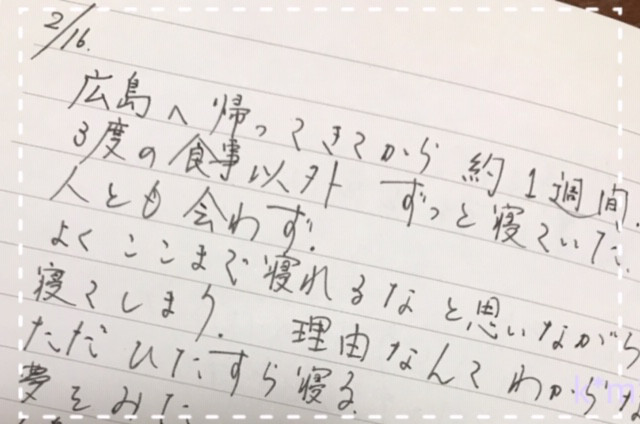 2/16.
広島へ帰ってきてから 約1週間.
3度の食事以外 ずっと寝ていた.
人とも会わず.
よくここまで寝れるなと思いながら
寝てしまう. 理由なんてわからな
ただひたすら寝る.
夢をみた
k*m